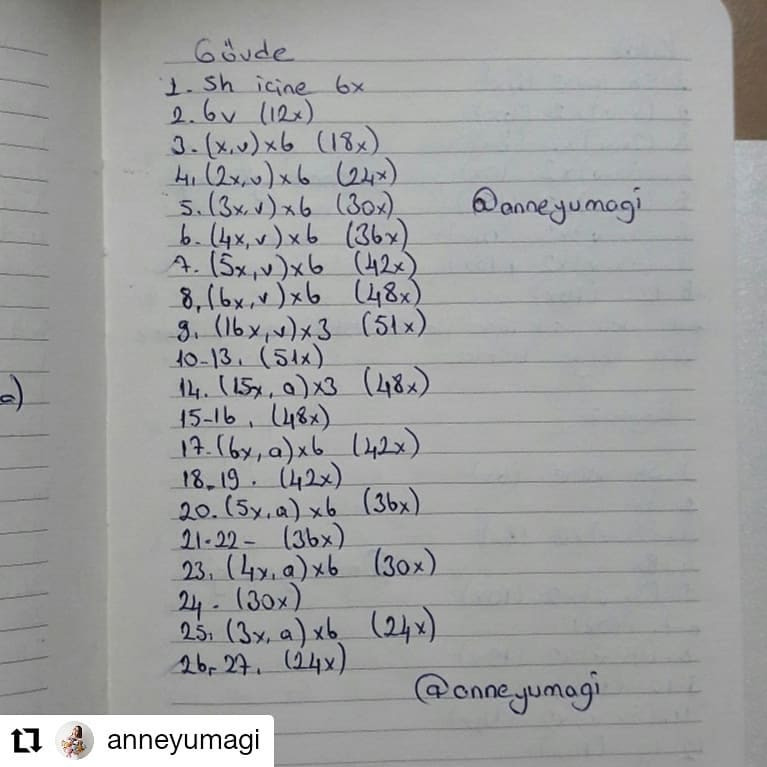 Gövde
1. Sh içine 6x
2. 6v (12x)
3. (x,v)x6 (18x)
4. (2x,v)x6 (24x)
5. (3x,v)x6 (30x)
@anneyumagi
6. (4x,v)x6 (36x)
7. (5x,v)x6 (42x)
8. (6x,v)x6 (48x)
9. (16x,v)x3 (51x)
10-13. (51x)
14. (15x, a)x3 (48x)
15-16. (48x)
17. (6x, a)x6 (42x)
18-19. (42x)
20. (5x, a)x6 (36x)
21-22- (36x)
23. (4x, a)x6 (30x)
24. (30x)
25. (3x, a)x6 (24x)
26-27. (24x)
@anneyumagi
anneyumagi